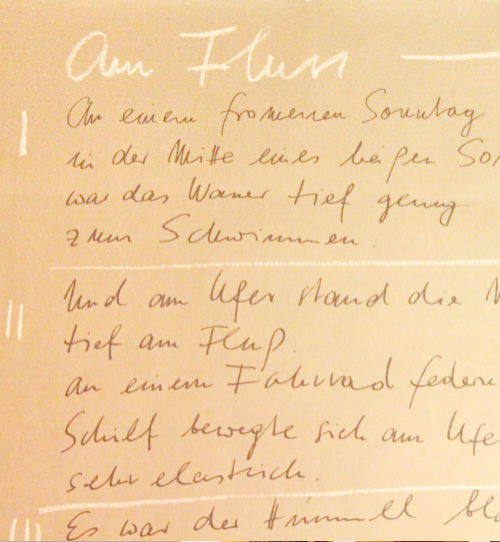 Am Fluss
I
An einem Sonntag
in der Mitte eines heißen
war das Wasser tief genug
zum Schwimmen.
II
Und am Ufer stand die
tief am Fluß.
an einem Fahrrad
Schilf bewegte sich am
sehr elastisch.
III
Es war der Himmel